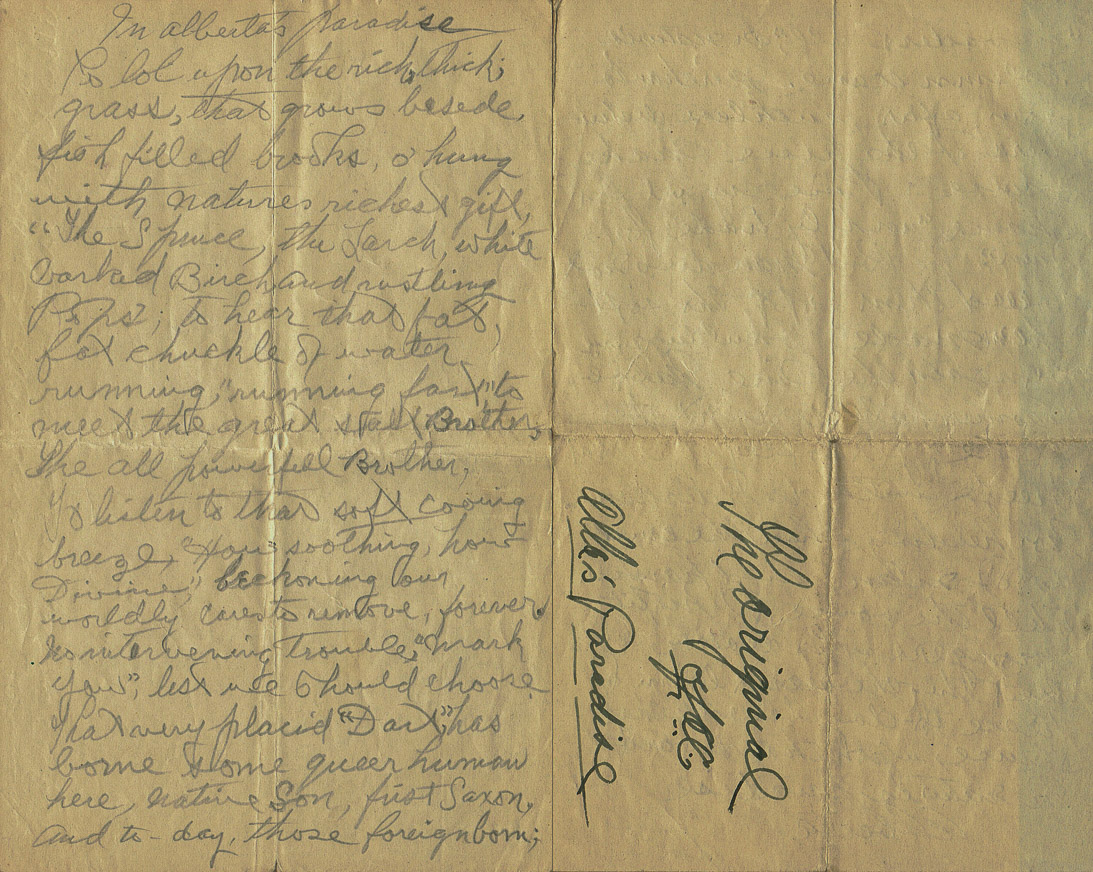 In alberta's Paradise
To lol upon the rich, thick,
grass, that grows beside,
fish filled brooks, o'hung
with natures richest gift,
"The Spruce, the Larch, white
barked Birch and rustling
Pops"; to hear that fat,
fat chuckle of water
running, "running fast" to
meet the great still Brother,
The all powerful Brother,
To listen to that soft cooing
breeze, "How soothing, how
Divine," beckoning our
worldly cares to remove, forever.
No intervening trouble, "mark
you", lest we should choose
That very placid "Dart," has
borne some queer human
here, native Son, first Saxon,
and to-day, those foreign born;
The original
of
Alb's Paradise